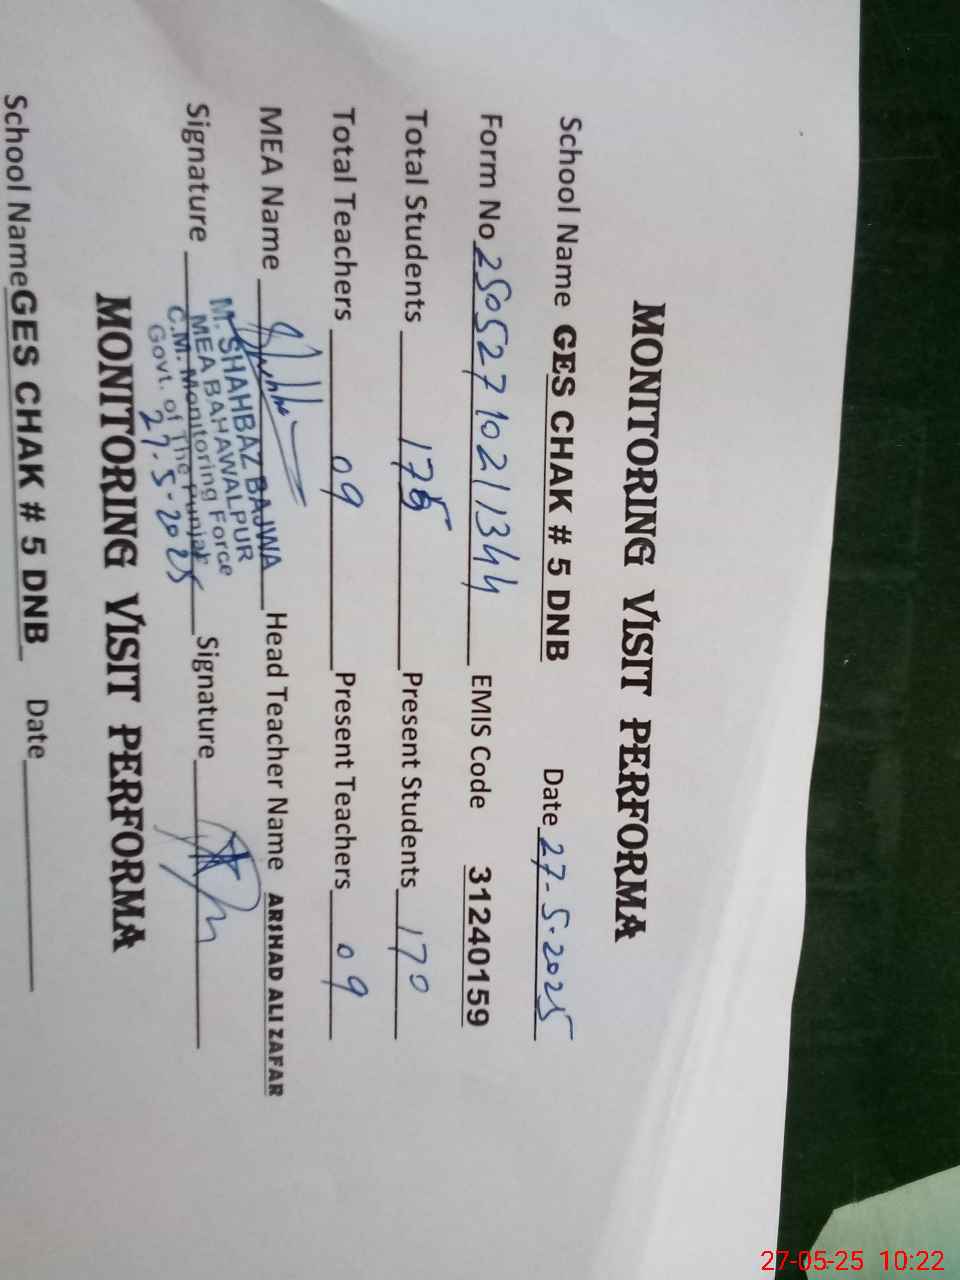 MONITORING VISIT PERFORMA
School Name GES CHAK # 5 DNB Date 27-5-2025
Form No 2505271021344 EMIS Code 31240159
Total Students 175 Present Students 170
Total Teachers 09 Present Teachers 09
MEA Name Head Teacher Name ARSHAD ALI ZAFAR
M. SHAHBAZ BAJWA
MEA BAHAWALPUR
C.M. Monitoring Force
Govt. of The Punjab
Signature 27-5-2025 Signature
MONITORING VISIT PERFORMA
School Name GES CHAK # 5 DNB Date
27-05-25 10:22